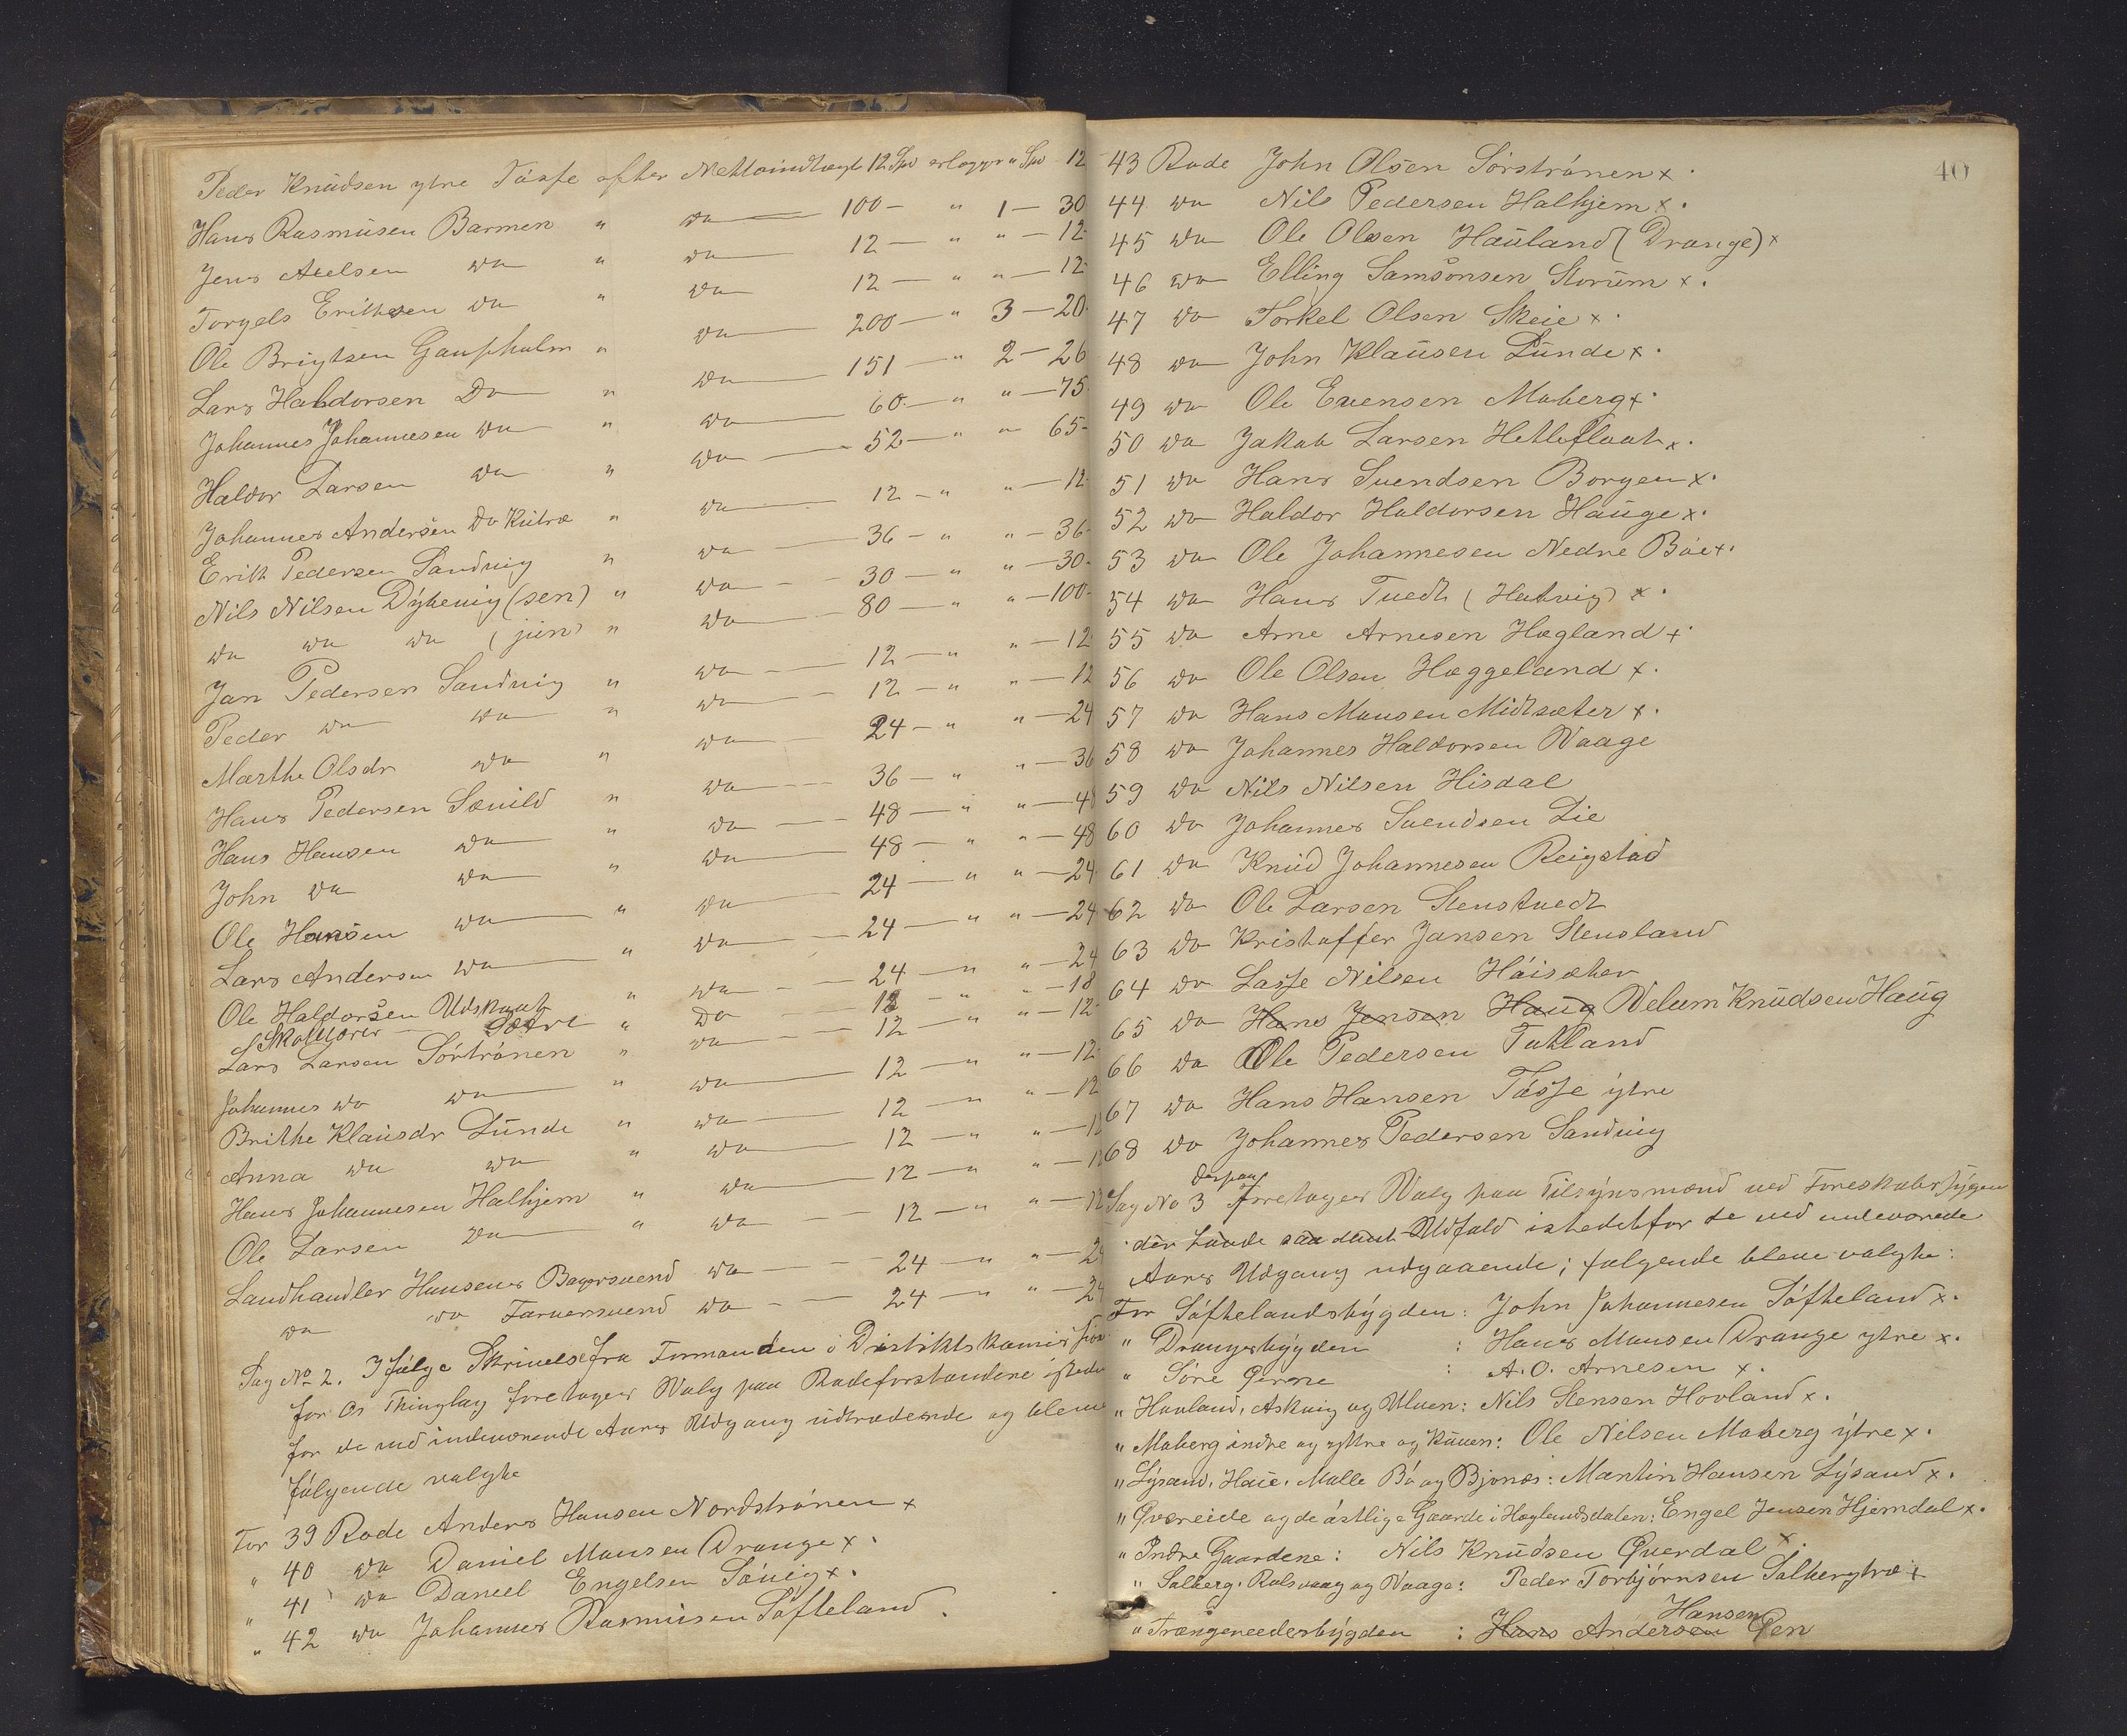 Peder Knudsen ytre Tøsse efter Nettoindtægt 12 Spd erlægger " Spd 12
Hans Rasmusen Barmen " do 100 — " 1 — 30
Jens Axelsen do " do 12 — " " — 12
Torgels Eriksen do " do 12 — " " — 12
Ole Brigtsen Gaupholm " do 200 — " 3 — 20
Lars Haldorsen Do " do 151 — " 2 — 26
Johannes Johannesen do " do 60 — " " — 75
Haldor Larsen do " do 52 — " " 65
Johannes Andersen Do Kutræ " do 12 — " " — 12
Erik Pedersen Sandvig " do 36 — " " — 36
Nils Nilsen Dyhevig (sen) " do 30 — " " — 30
do do do (jun) " do 80 — " " — 100
Jan Pedersen Sandvig " do 12 — " " — 12
Peder do do " do 12 — " " — 12
Marthe Olsdr do " do 24 — " " — 24
Hans Pedersen Sævild " do 36 — " " — 36
Hans Hansen do " do 48 — " " — 48
John do do " do 48 — " " — 48
Ole Hansen do " do 24 — " " — 24
Lars Andersen do " do 24 — " " — 24
Ole Haldorsen Udskaat " do 24 — " " — 24
Skolelærer Sætre " Do 18 — " " — 18
Lars Larsen Sørstrønen " do 12 — " " — 12
Johannes do do " do 12 — " " — 12
Brithe Klausdr Lunde " do 12 — " " — 12
Anna do do " do 12 — " " — 12
Hans Johannesen Halhjem " do 12 — " " — 12
Ole Larsen do " do 12 — " " — 12
Landhandler Hansens Bagersvend do 24 — " " — 24
do do Farversvend do 24 — " " — 24
Sag No 2. Ifølge Skrivelse fra Formanden i Distriktskommissjon
for Os Thinglag foretages Valg paa Rodeforstandere isteden
for de ved indeværende Aars Udgang udtrædende og bleve
følgende valgte
For 39 Rode Anders Hansen Nordstrønen x
" 40 do Daniel Monsen Drange x.
" 41 do Daniel Engelsen Søvig x.
" 42 do Johannes Rasmusen Søfteland.
40
43 Rode John Olsen Sørstrønen x.
44 do Nils Pedersen Halhjem x.
45 do Ole Olsen Hauland (Drange) x
46 do Elling Samsonsen Storum x.
47 do Torkel Olsen Skeie x.
48 do John Klausen Lunde x.
49 do Ole Evensen Moberg x.
50 do Jakob Larsen Hetleflaat x.
51 do Hans Svendsen Borgen x.
52 do Haldor Haldorsen Hauge x.
53 do Ole Johannesen Nedre Bøe x.
54 do Hans Tuedt (Hatvig) x.
55 do Arne Arnesen Hegland x.
56 do Ole Olsen Heggeland x.
57 do Hans Monsen Midtsæter x.
58 do Johannes Haldorsen Vaage
59 do Nils Nilsen Hisdal
60 do Johannes Svendsen Lie
61 do Knud Johannesen Reigstad
62 do Ole Larsen Stenstuedt
63 do Kristoffer Jansen Stensland
64 do Lasse Nilsen Høisæter
65 do Hans Jensen Haug Velum Knudsen Haug
66 do Ole Pedersen Tukland
67 do Hans Hansen Tøsse ytre
68 do Johannes Pedersen Sandvig
Sag No 3 Derpaa foretages Valg paa Tilsynsmænd ved
Aars Udgang udgaaende; følgende bleve valgte:
For Søftelandsbygden: John Johannesen Søfteland x.
" Drangesbygden : Hans Monsen Drange ytre x.
" Søre Øerne : A. O. Arnesen x.
" Hovland, Askvig og Ulven: Nils Stensen Hovland x.
" Moberg indre og yttre og Kuven: Ole Nilsen Moberg ytre x.
" Lysand, Haie, Malle Bø og Bjønes: Martin Hansen Lysand x.
" Øvreeide og de østlige Gaarde i Heglandsdalen: Engel Jensen Hjemdal x.
" Indre Gaardene: Nils Knudsen Øverdal x.
" Solberg, Rolsvaag og Vaage: Peder Torbjørnsen Solbergtræ x
" Strængereedersbygden : Hans Andersen Hansen Øen